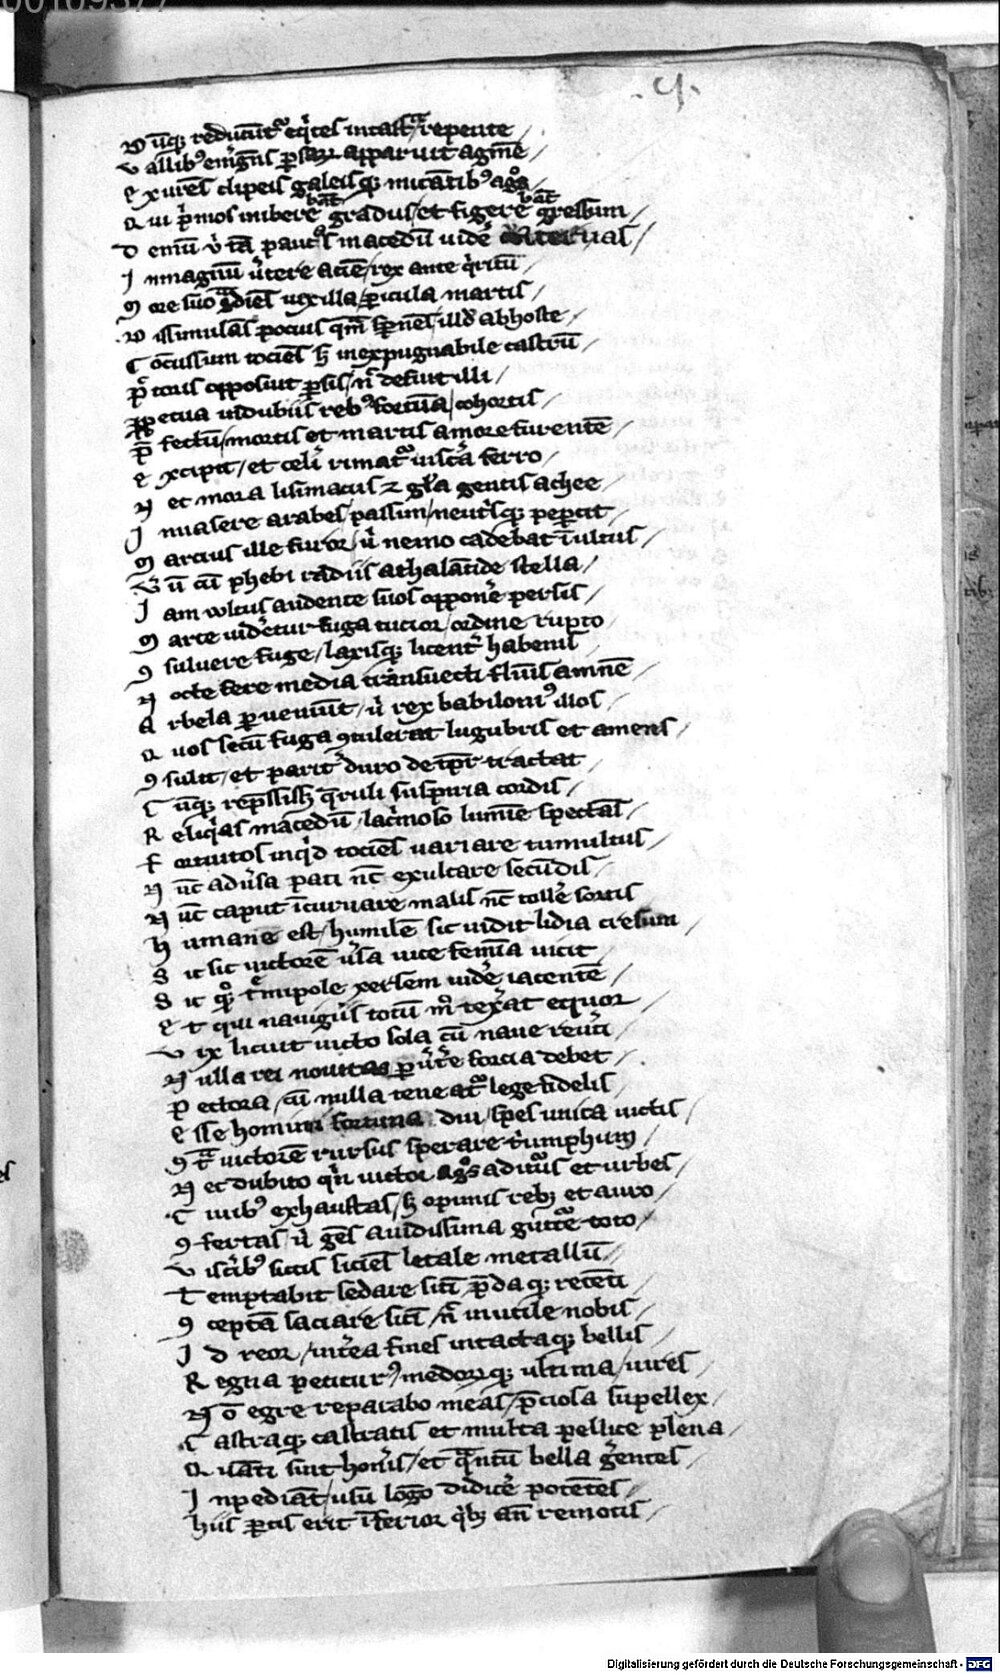 00109377
D um̄qꝫ reducūt᷒ eq̇tes in castᷓ repente /
v allibꝰ em̄gēs ꝑsaꝝ apparuit agmē /
E xutēs clipeis galeis qꝫ micātibꝰ agͦs /
bāt bāt
Q ui p̄mos inibere gradus / et figere gressum /
D emū v̇ tā paucͦs macedū videͬ
I nmagnū v̇tere aciē / rex ante q̇ritū /
M ore suo gͣdiēs vexilla / ꝑicula martis /
D issimulās pocius qͣm sp̄nēs illd̓ ab hoste /
C ōcussum tociēs sꝫ inexpugnabile castrū /
p̄ toris opposiuit ꝑsis / n̄ defuit illi /
ꝑpetua in dubiis rebꝰ fortūa / cohortis /
P̄ fectū / mortis et martis amore furentē /
E xcipit / et celi rimat᷒ viscͣa ferro /
N ec mora lisimacus ⁊ gl̄a gentis achee
I nuasere arabes / passim / neut̓sqꝫ peꝑcit
M arcius ille furor / v̇ nemo cadebat īultus /
V̇ ū cū phebi radiis athalātide stella /
I am vultus audente suos opponeͬ persis /
M arte videt̄ur fuga tucior / ordine rupto
ꝯ suluere fuge / laxisqꝫ licent᷒ habenis /
N octe fere media trāsuecti flūis amnē /
A rbela ꝑuenīut / v̇ rex babiloniꝰ illos /
Q uos secū fuga ꝯtulerat lugubris et amens /
ꝯ sulit / et parit᷒ duro de tp̄r tractat
C um̄qꝫ rep̄ssissꝫ q̄ruli suspiria cordis /
R eliq̇as macedū / lac̓moso lumīe spectās /
F ortuitos inq̇d tociēs variare tumultus /
N ūc adu̓sa pati nc̄ exultare secūdis /
N ūc caput īcuruare malis nc̄ tolleͬ sortis
h umane est / humilē sic vidit lidia cresum /
S ic sic victorē v̓sa vice femīa vicit
S ic qꝫͦ t̓mipole xersem videͬ iacentē /
E t qui nauigiis totū mͦ tex̓at equor /
V ix licuit victo sola cū naue reu̓ti
N ulla rei nouitas ꝑu̓t̓e forcia debet /
P ectora / cū nulla teneat᷒ lege fidelis
E sse homini fortuna diu / spes vnica victis /
ꝯ tͣ victorē rursus sperare t̓umphum /
N ec dubito q̇n victor agͦs aditͣus et vrbes /
C iuibꝰ exhaustas / sꝫ opimis rebꝫ et auro /
ꝯ fertas / v̇ gēs auidissima gutt̓e toto /
V isc̓ibꝰ siccis siciēs letale metallū /
T emptabit sedare sitī / p̄da qꝫ recēti
ꝯ ceptā saciare sitī / n̄ inutile nobis /
I d reor / int̓ea fines intactaqꝫ bellis /
R egna petiturꝰ / medorūqꝫ vltima / vires /
N ō egre reparabo meas / p̄ciosa supellex /
C astraqꝫ castratis et multa pellice plena /
Q uāti sint hon̓is / et qͣntū bella gͬentes /
I npediāt / vsū lōgo didiceͬ potētes /
hiis ꝑtis erit īferior q̇bꝫ an̄ remotis /
Digitalisierung gefördert durch die Deutsche Forschungsgemeinschaft - DFG